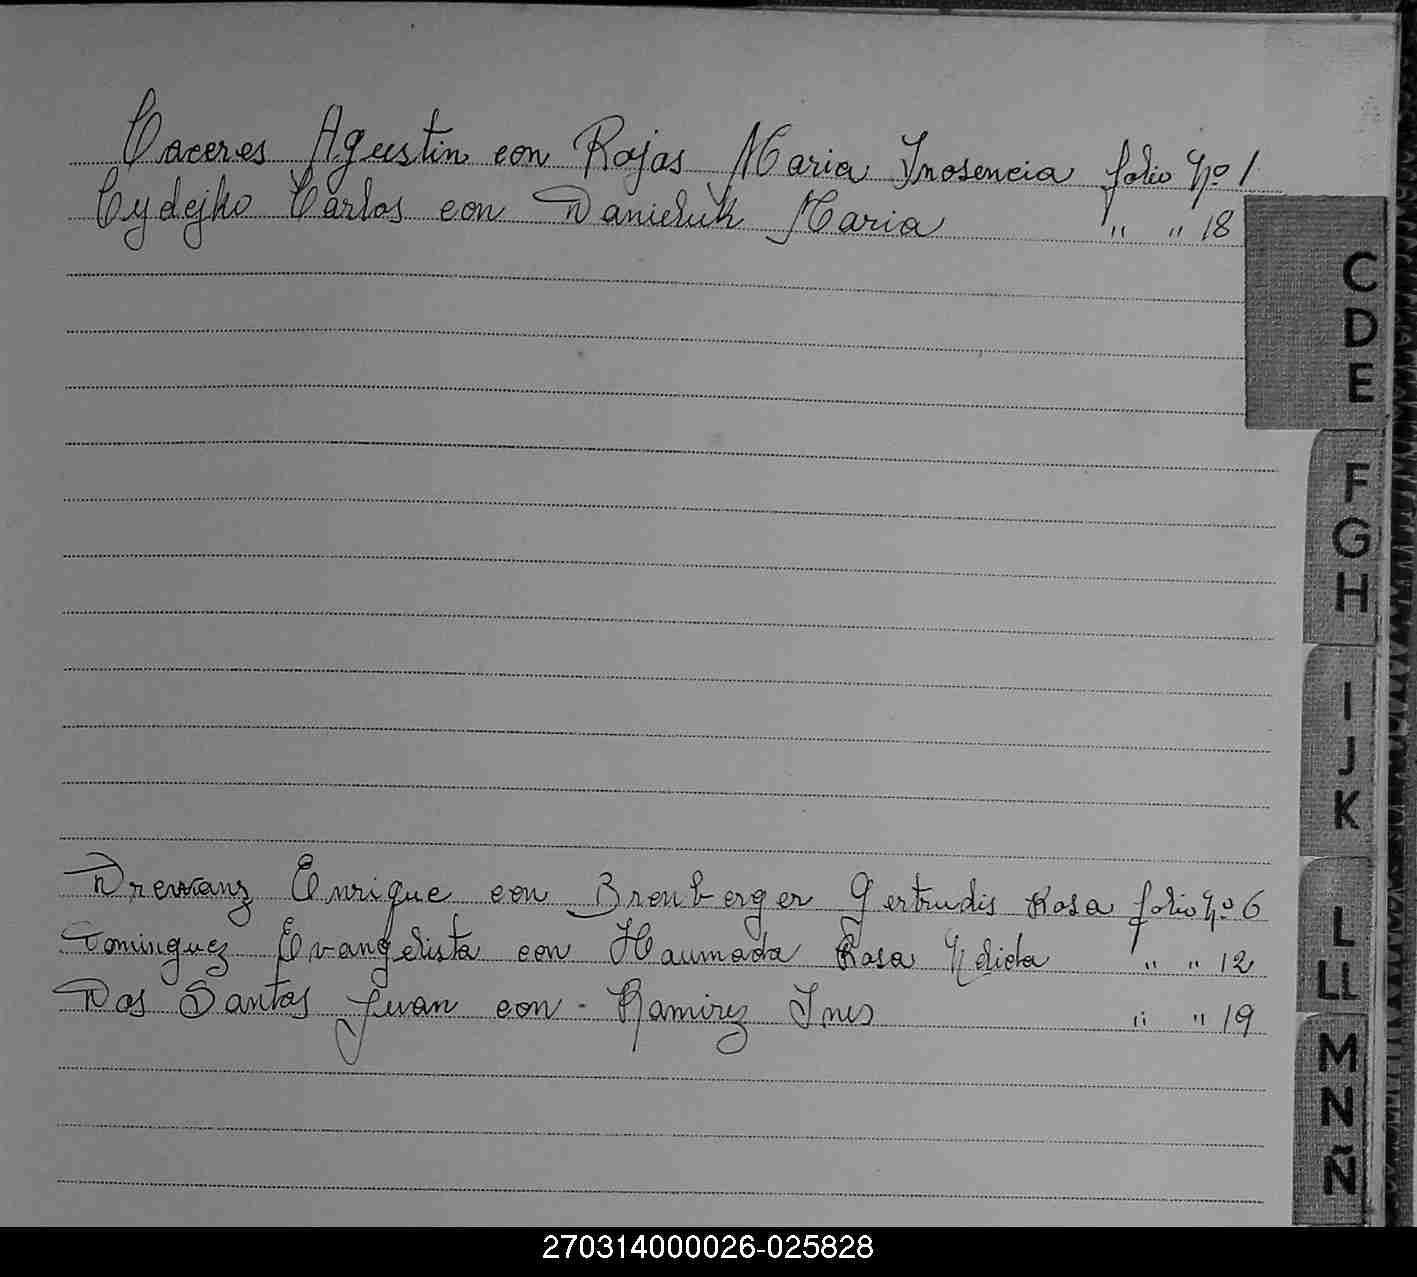 Caceres Agustin con Rojas Maria Inosencia folio Nº 1
Cydejko Carlos con Danieluk Maria " " 18
C
D
E
F
G
H
I
J
K
Drewanz Enrique con Brenberger Gertrudis Rosa folio Nº 6
Dominguez Evangelista con Haumada Rosa Nelida " " 12
Dos Santos Juan con - Ramirez Ines " " 19
L
LL
M
N
Ñ
270314000026-025828